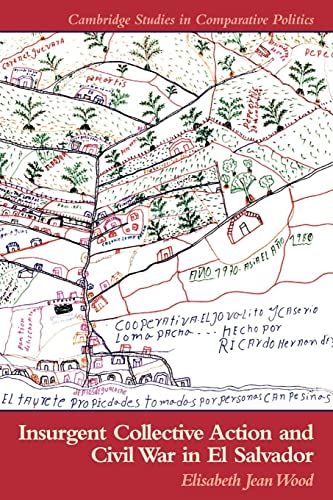 Cambridge Studies in Comparative Politics
EL AÑO 1970. ASI EL AÑO 1980
COOPERATIVA EL JOVALITO Y CASERIO
LOMA PACHA... HECHO POR
RICARDO HERNANDEZ
EL TAURETE PROPIEDADES TOMADAS POR PERSONAS CAMPESINAS
Insurgent Collective Action and
Civil War in El Salvador
Elisabeth Jean Wood